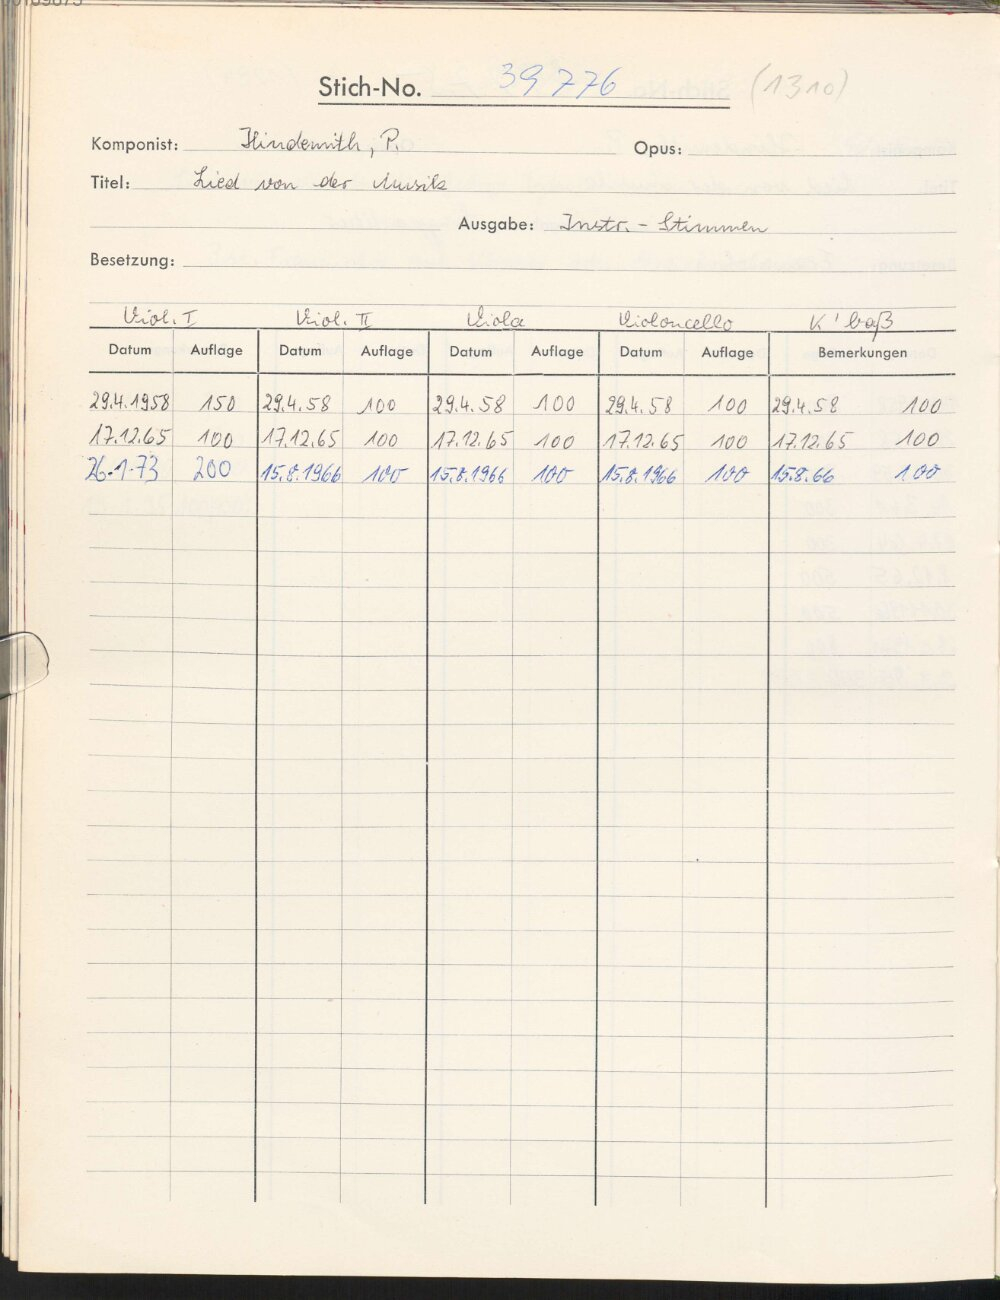 Stich-No. 39776 (1310)
Komponist: Hindemith, P. Opus:
Titel: Lied von der Musik
Ausgabe: Instr. - Stimmen
Besetzung:
Viol. I Viol. II Viola Violoncello K'baß
Datum Auflage Datum Auflage Datum Auflage Datum Auflage Bemerkungen
29.4.1958 150 29.4.58 100 29.4.58 100 29.4.58 100 29.4.58 100
17.12.65 100 17.12.65 100 17.12.65 100 17.12.65 100 17.12.65 100
26.1.73 200 15.8.1966 100 15.8.1966 100 15.8.1966 100 15.8.66 100